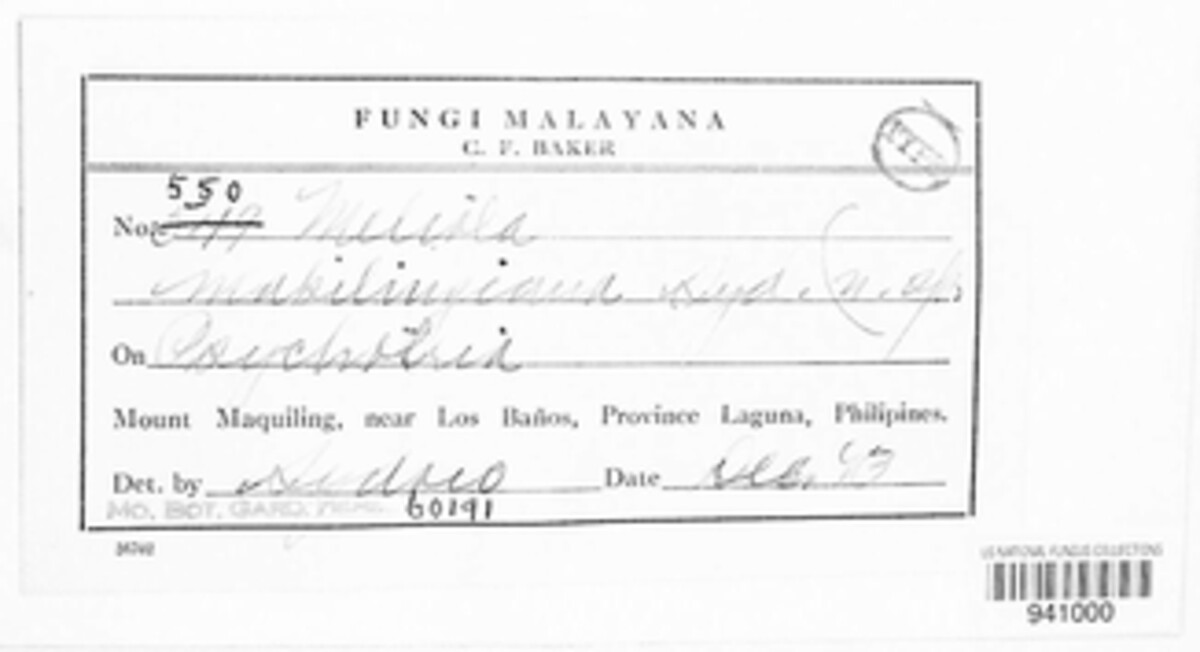 FUNGI MALAYANA
C. F. BAKER
TYPE
550
No. 549 Meliola
makilingiana Syd. (n. sp.
On Psychotria
Mount Maquiling, near Los Baños, Province Laguna, Philipines.
Det. by Sydow Date Dec. '13
MO. BOT. GARD. 60191
US NATIONAL FUNGUS COLLECTIONS
941000